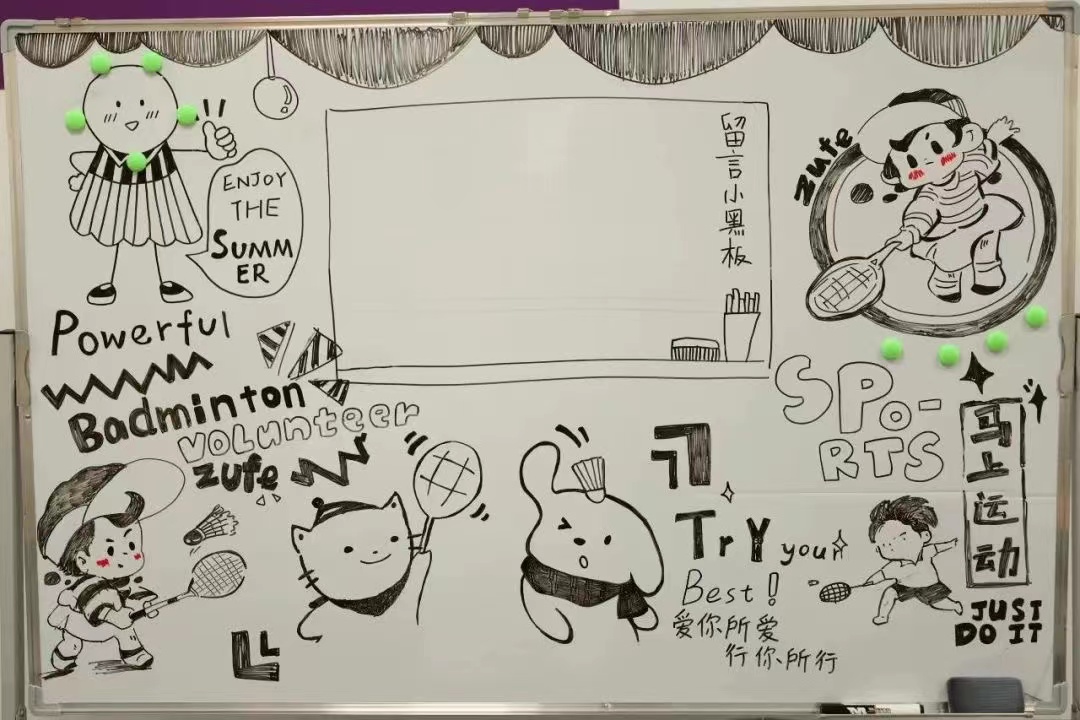 ENJOY
THE
SUMM
ER
留言小黑板
zufe
Powerful
Badminton
VOLunteer
zufe
SPO-
RTS
马上运动
TrY your
Best!
爱你所爱
行你所行
JUST
DO IT